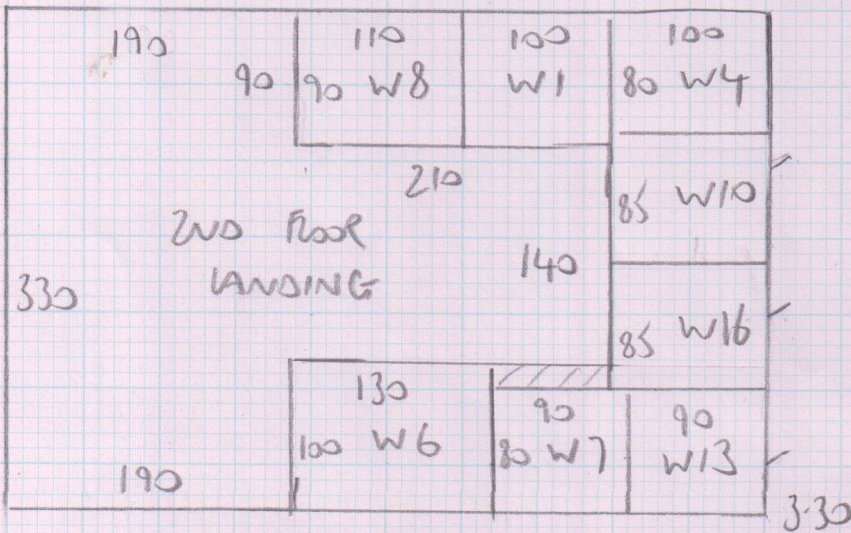 190
110
100
100
90
90 W8
W1
80 W4
210
85 W10
2ND FLOOR
LANDING
140
330
85 W16
130
90
90
100 W6
80 W7
W13
190
3.30